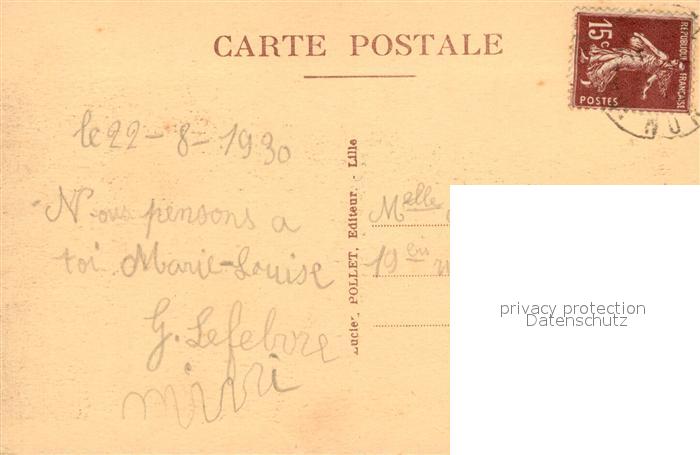 CARTE POSTALE
15c
REPUBLIQUE FRANÇAISE
POSTES
le 22-8-1930
Nous pensons a
toi Marie-Louise
G. Lefebvre
Lucien POLLET, Editeur. - Lille
Melle
19 bis
privacy protection
Datenschutz